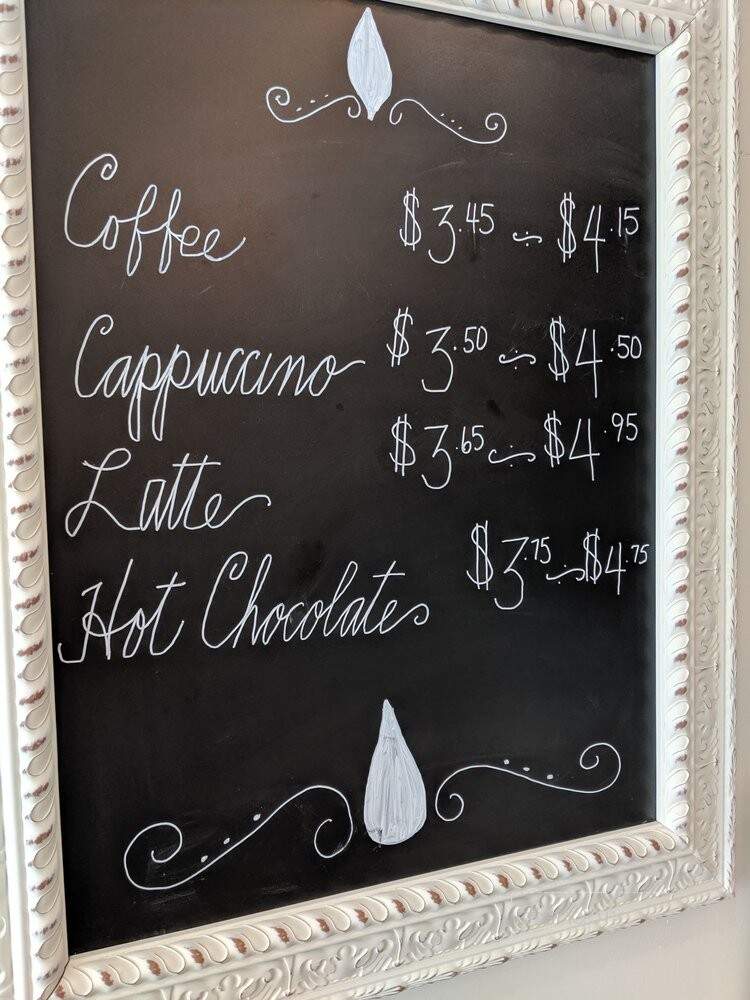 Coffee $3.45 ~ $4.15
Cappuccino $3.50 ~ $4.50
Latte $3.65 ~ $4.95
Hot Chocolate $3.75 ~ $4.75